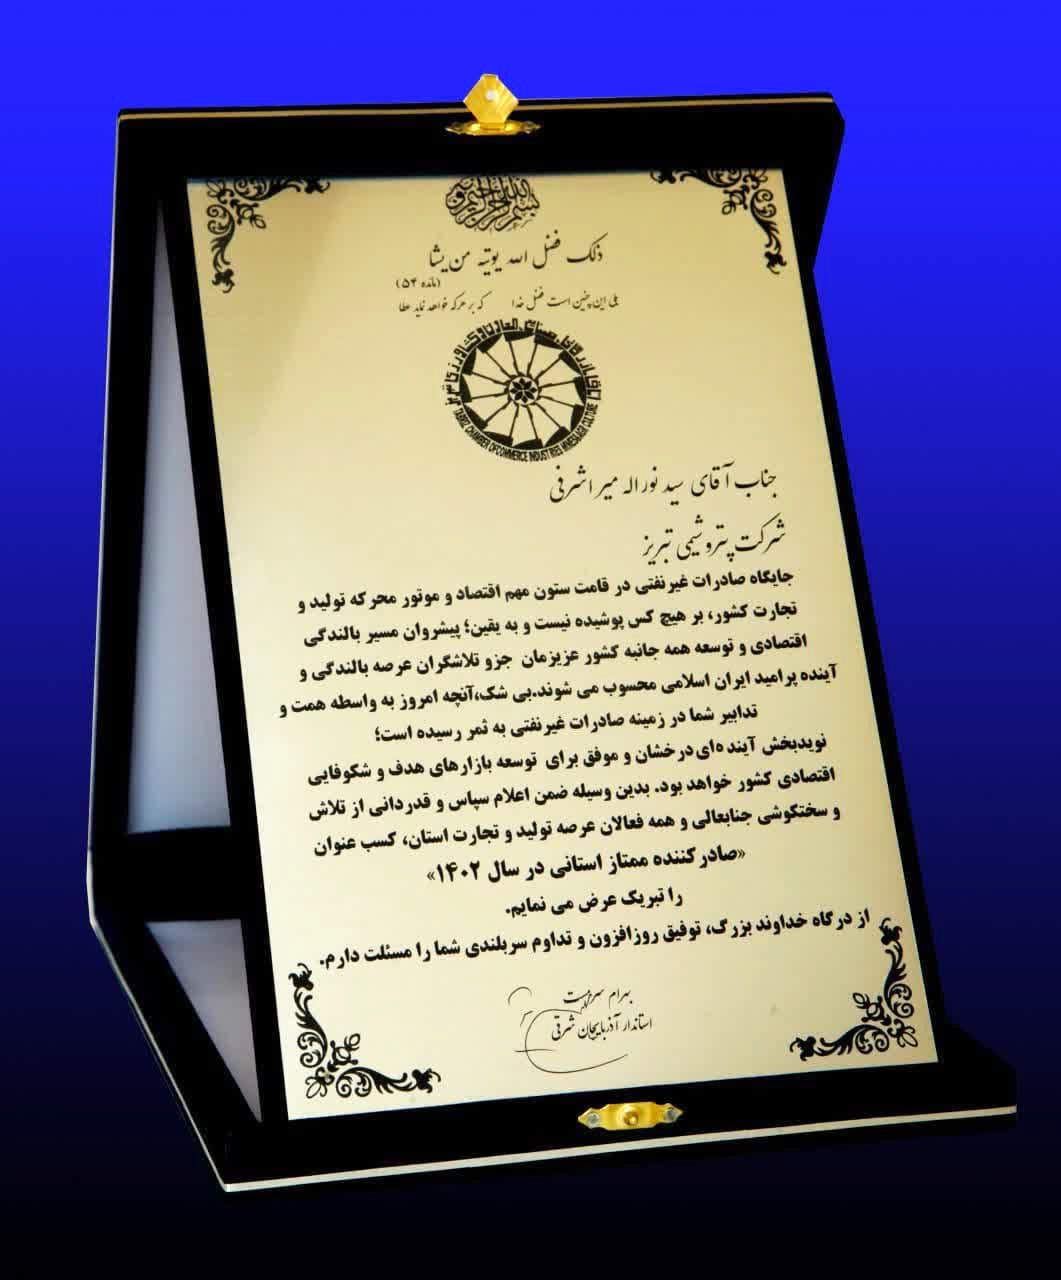 بسم الله الرحمن الرحیم
ذلک فضل الله یوتیه من یشا
(مائده ۵۴)
بلی این چنین است فضل خدا که بر هرکه خواهد نماید عطا
اتاق بازرگانی، صنایع، معادن و کشاورزی تبریز
TABRIZ CHAMBER OFCOMMERCE INDUSTRIES MINES&AGR CULTURE
جناب آقای سید نوراله میراشرفی
شرکت پتروشیمی تبریز
جایگاه صادرات غیرنفتی در قامت ستون مهم اقتصاد و موتور محرکه تولید و
تجارت کشور، بر هیچ کس پوشیده نیست و به یقین؛ پیشروان مسیر بالندگی
اقتصادی و توسعه همه جانبه کشور عزیزمان جزو تلاشگران عرصه بالندگی و
آینده پرامید ایران اسلامی محسوب می شوند.بی شک،آنچه امروز به واسطه همت و
تدابیر شما در زمینه صادرات غیرنفتی به ثمر رسیده است؛
نویدبخش آینده‌ای درخشان و موفق برای توسعه بازارهای هدف و شکوفایی
اقتصادی کشور خواهد بود. بدین وسیله ضمن اعلام سپاس و قدردانی از تلاش
و سختکوشی جنابعالی و همه فعالان عرصه تولید و تجارت استان، کسب عنوان
«صادرکننده ممتاز استانی در سال ۱۴۰۲»
را تبریک عرض می نمایم.
از درگاه خداوند بزرگ، توفیق روزافزون و تداوم سربلندی شما را مسئلت دارم.
بهرام سرمست
استاندار آذربایجان شرقی